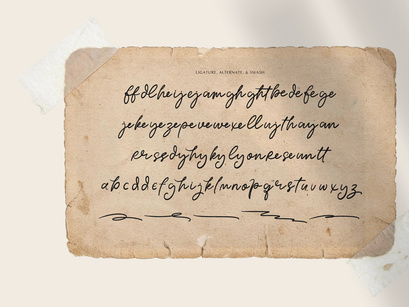 LIGATURE, ALTERNATE, & SWASH
ffdlheiyejamghghtbedefege
jekeyezepevewexellujthayan
rrssdyhykylyonreseunntt
abcddefghijklmnopqrstuvwxyz